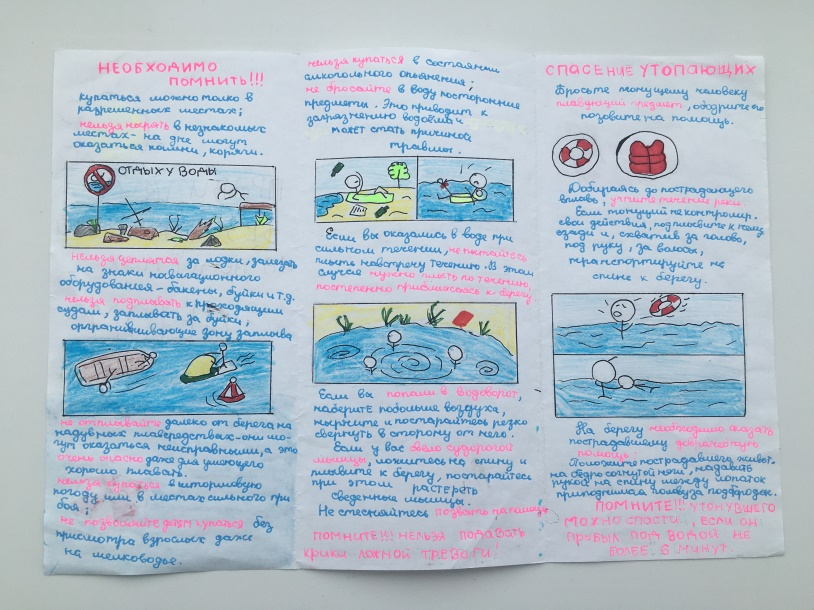 НЕОБХОДИМО
ПОМНИТЬ!!!
купаться можно только в
разрешенных местах;
нельзя нырять в незнакомых
местах- на дне могут
оказаться камни, коряги.
ОТДЫХ У ВОДЫ
Нельзя цепляться за лодки, залезать
на знаки навигационного
оборудования - бакены, буйки и т.д.
нельзя подплывать к проходящим
судам, заплывать за буйки,
ограничивающие зону заплыва
не отплывайте далеко от берега на
надувных плавсредствах-они мо-
гут оказаться неисправными, а это
очень опасно даже для умеющего
хорошо плавать.
нельзя купаться в штормовую
погоду или в местах сильного при
боя;
не позволяйте детям купаться без
присмотра взрослых даже
на мелководье.
нельзя купаться в состоянии
алкогольного опьянения;
не бросайте в воду посторонние
предметы. Это приводит к
загрязнению водоёма и
может стать причиной
травмы.
Если вы оказались в воде при
сильном течении, не пытайтесь
плыть навстречу течению. В этом
случае нужно плыть по течению,
постепенно приближаясь к берегу
Если вы попали в водоворот,
наберите побольше воздуха,
нырните и постарайтесь резко
свернуть в сторону от него.
Если у вас свело судорогой
мышцы, ложитесь на спину и
плывите к берегу, постарайтесь
при этом растереть
сведенные мышцы.
Не стесняйтесь позвать на помощь
ПОМНИТЕ!!! НЕЛЬЗЯ ПОДАВАТЬ
КРИКИ ЛОЖНОЙ ТРЕВОГИ!
СПАСЕНИЕ УТОПАЮЩИХ
Бросьте тонущему человеку
плавующий предмет, ободрите его
позовите на помощь.
Добираясь до пострадающего
вплавь, учтите течение реки.
Если тонущий не контролир.
свои действия, подплывите к нему
сзади и, схватив за голову,
под руку, за волосы,
транспортируйте на
спине к берегу.
На берегу необходимо оказать
пострадавшему доврачебную
помощь:
Положите пострадавшего живот.
на бедро согнутой ноги, надавить
рукой на спину между лопаток
приподнимая голову за подбородок.
ПОМНИТЕ!!! УТОНУВШЕГО
МОЖНО СПАСТИ, ЕСЛИ ОН
ПРОБЫЛ ПОД ВОДОЙ НЕ
БОЛЕЕ 6 МИНУТ.